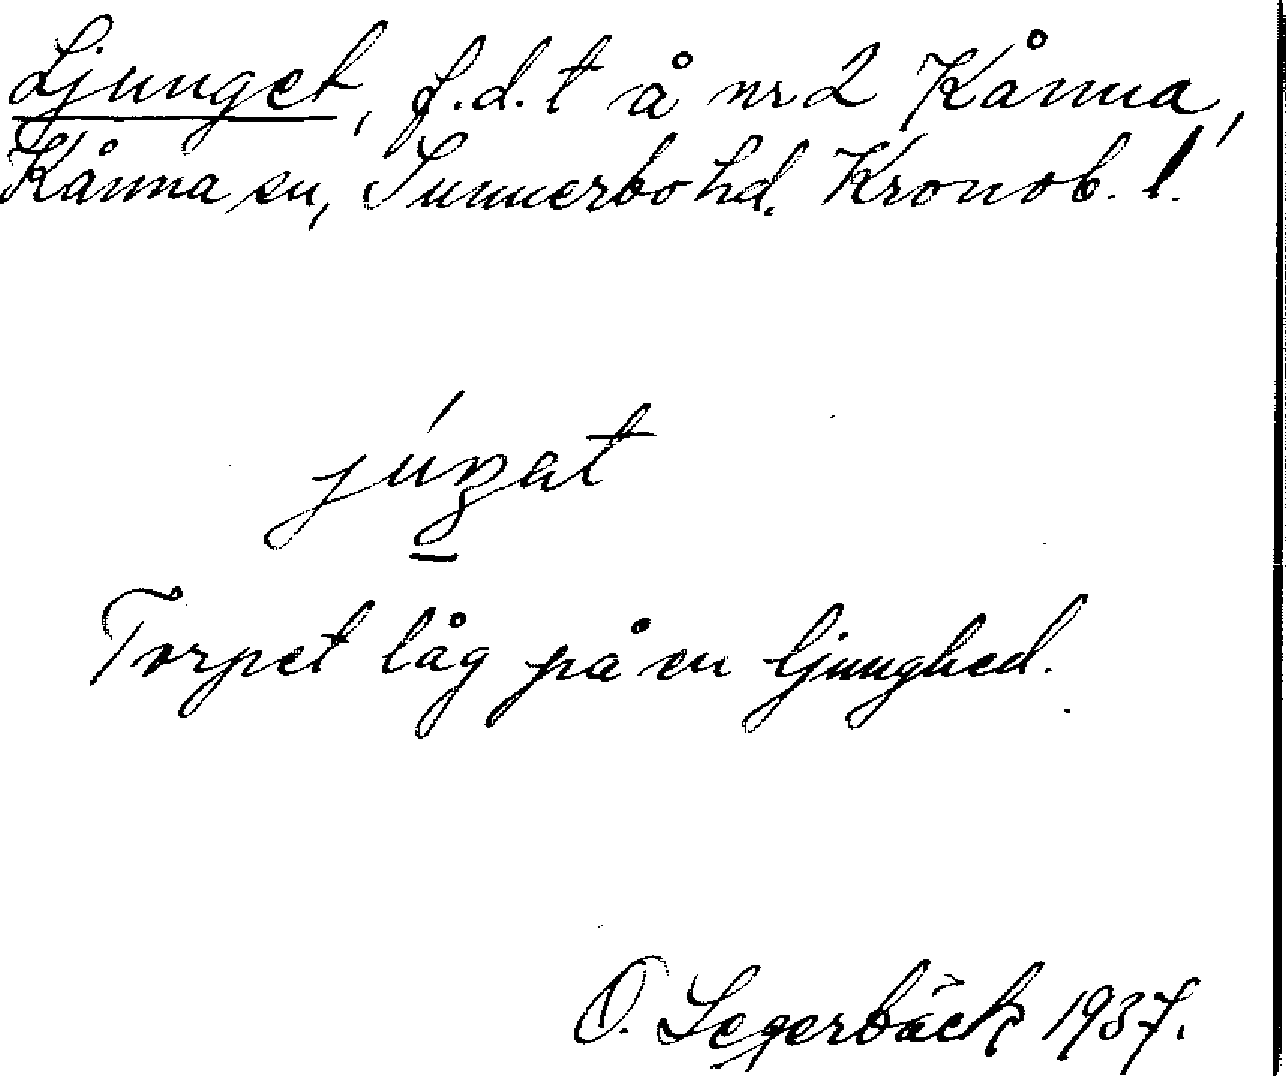 Ljunget, f.d. t å nr 2 Kånna,
Kånna sn, Sunnerbo hd. Kronob. l.
júŋat
Torpet låg på en ljunghed.
O. Segerbäck 1937.